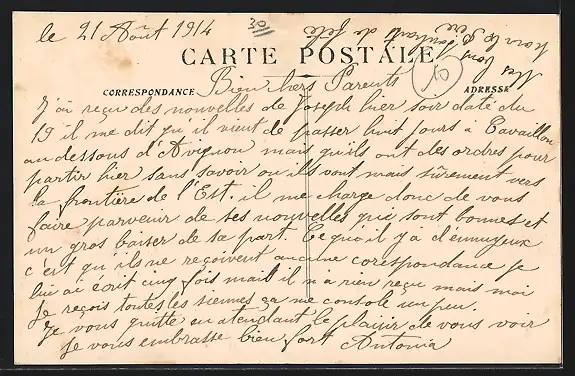 le 21 Août 1914
30
Mes bons souhaits de fête
pour le Père
CARTE POSTALE
10
CORRESPONDANCE
ADRESSE
Bien chers Parents
J'ai reçu des nouvelles de Joseph hier soir daté du
19 il me dit qu'il vient de passer huit jours à Cavaillon
au dessous d'Avignon mais qu'ils ont des ordres pour
partir hier sans savoir ou ils vont mais sûrement vers
la frontière de l'Est. il me charge donc de vous
faire parveur de ses nouvelles qui sont bonnes et
un gros baiser de sa part. Ce qu'il y a d'ennuyeux
c'est qu'ils ne reçoivent aucune corespondance je
lui ai écrit cinq fois mais il n'a rien reçu mais moi
Je reçois toutes les siennes ça me console un peu.
Je vous quitte en atendant le plaisir de vous voir
Je vous embrasse bien fort Antonia